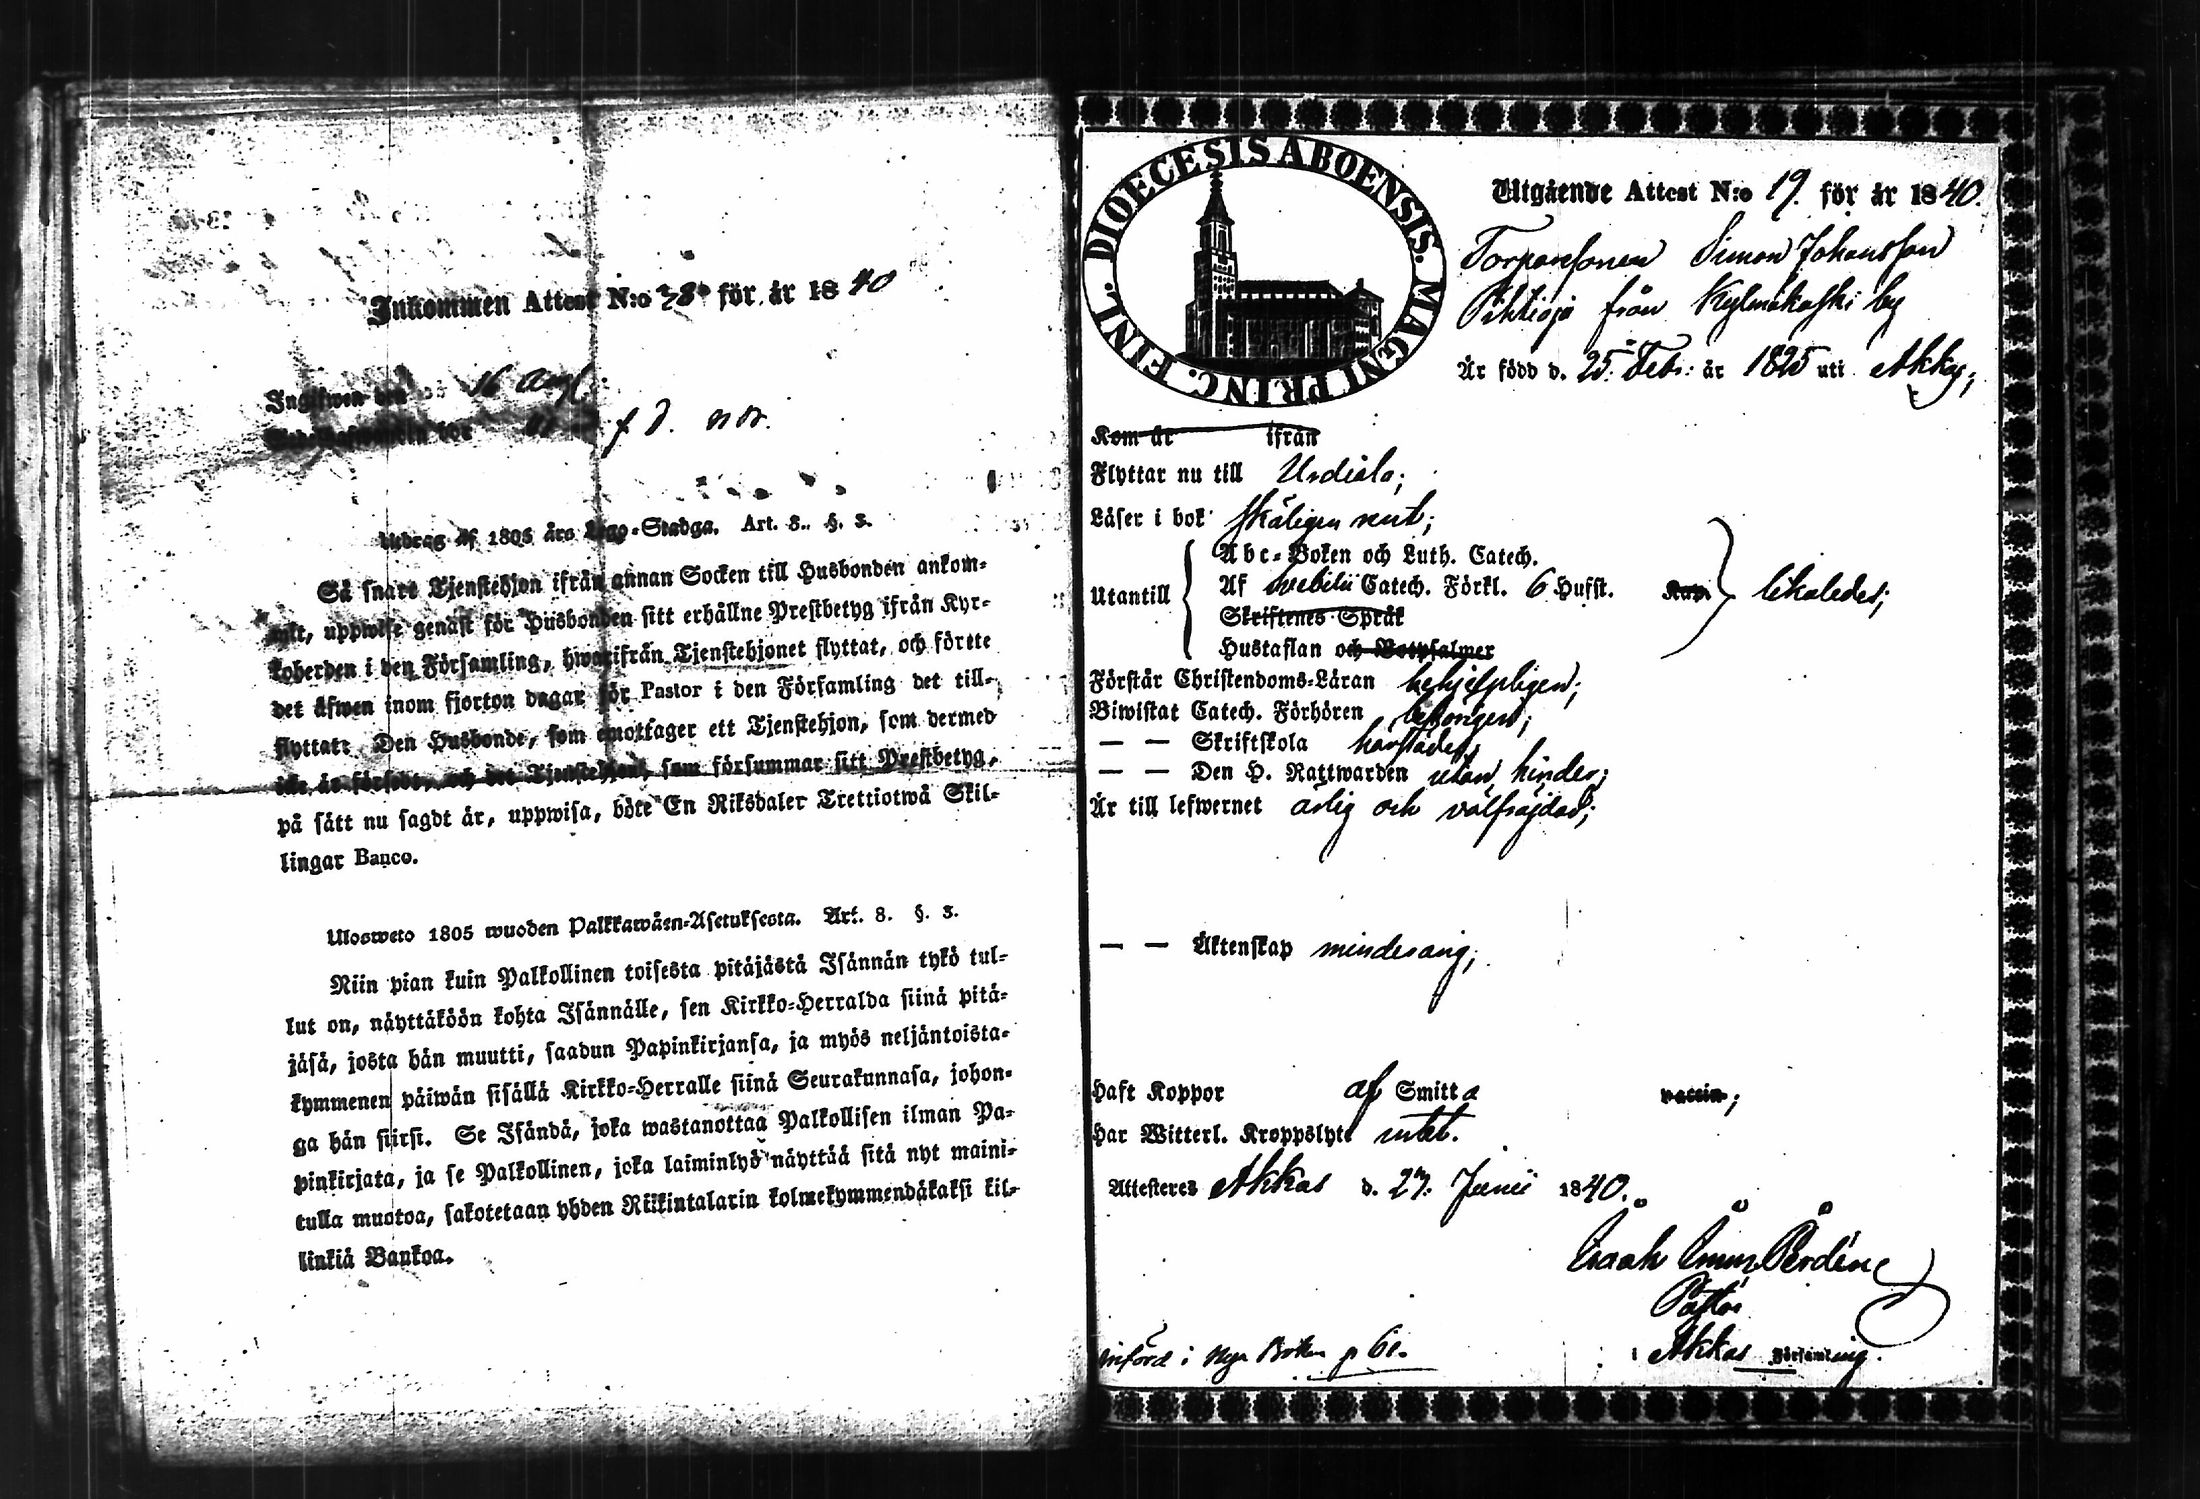 Inkommen Attest N:o 28 för år 1840
Ingifwen den 16 Aug.
f. d. n:r.
Utdrag af 1805 års Lego-Stadga. Art. 8. §. 3.
Så snart Tjenstehjon ifrån annan Socken till Husbonden ankom-
mit, uppwise genast för Husbonden sitt erhållne Prestbetyg ifrån Kyr-
koherden i den Församling, hwarifrån Tjenstehjonet flyttat, och förete
det äfwen inom fjorton dagar för Pastor i den Församling det till-
flyttat: Den Husbonde, som emottager ett Tjenstehjon, som dermed
icke är försedt, och det Tjenstehjon, som försummar sitt Prestbetyg,
på sätt nu sagdt är, uppwisa, böte En Riksdaler Trettiotwå Skil-
lingar Banco.
Ulosweto 1805 wuoden Palkkawäen-Asetuksesta. Art. 8. §. 3.
Niin pian kuin Palkollinen toisesta pitäjästä Isännän tykö tul-
lut on, näyttäköön kohta Isännälle, sen Kirkko-Herralda siinä pitä-
jäsä, josta hän muutti, saadun Papinkirjansa, ja myös neljäntoista-
kymmenen päiwän sisällä Kirkko-Herralle siinä Seurakunnasa, johon-
ga hän siirsi. Se Isändä, joka wastanottaa Palkollisen ilman Pa-
pinkirjata, ja se Palkollinen, joka laiminlyö näyttää sitä nyt maini-
tulla muotoa, sakotetaan yhden Riikintalarin kolmekymmendäkaksi kil-
linkiä Bankoa.
DIOECESIS ABOENSIS. MAGNI PRINC. FINL.
Utgående Attest N:o 19. för år 1840.
Torparesonen Simon Johansson
Pihtioja från Kylmäkoski by
Är född d. 25: Feb: år 1825 uti Akky;
Kom år ifrån
Flyttar nu till Urdiala;
Läser i bok skäligen rent;
Abc-Boken och Luth. Catech.
Utantill Af Svebelii Catech. Förkl. 6 Hufst. Kap. likaledes;
Skriftenes Språk
Hustaflan och Botpsalmer
Förstår Christendoms-Läran behjelpligen;
Biwistat Catech. Förhören behörigen;
— — Skriftskola härstädes;
— — Den H. Nattwarden utan hinder;
Är till lefwernet ärlig och välfräjdad;
— — Äktenskap minderårig;
Haft Koppor af Smitta vaccin;
Har Witterl. Kroppslyte intet.
Attesteres Akkas d. 27. Junii 1840.
Isaak Imm. Perdén
Pastor
i Akkas Församling.
Införd i Nya Boken p 61.